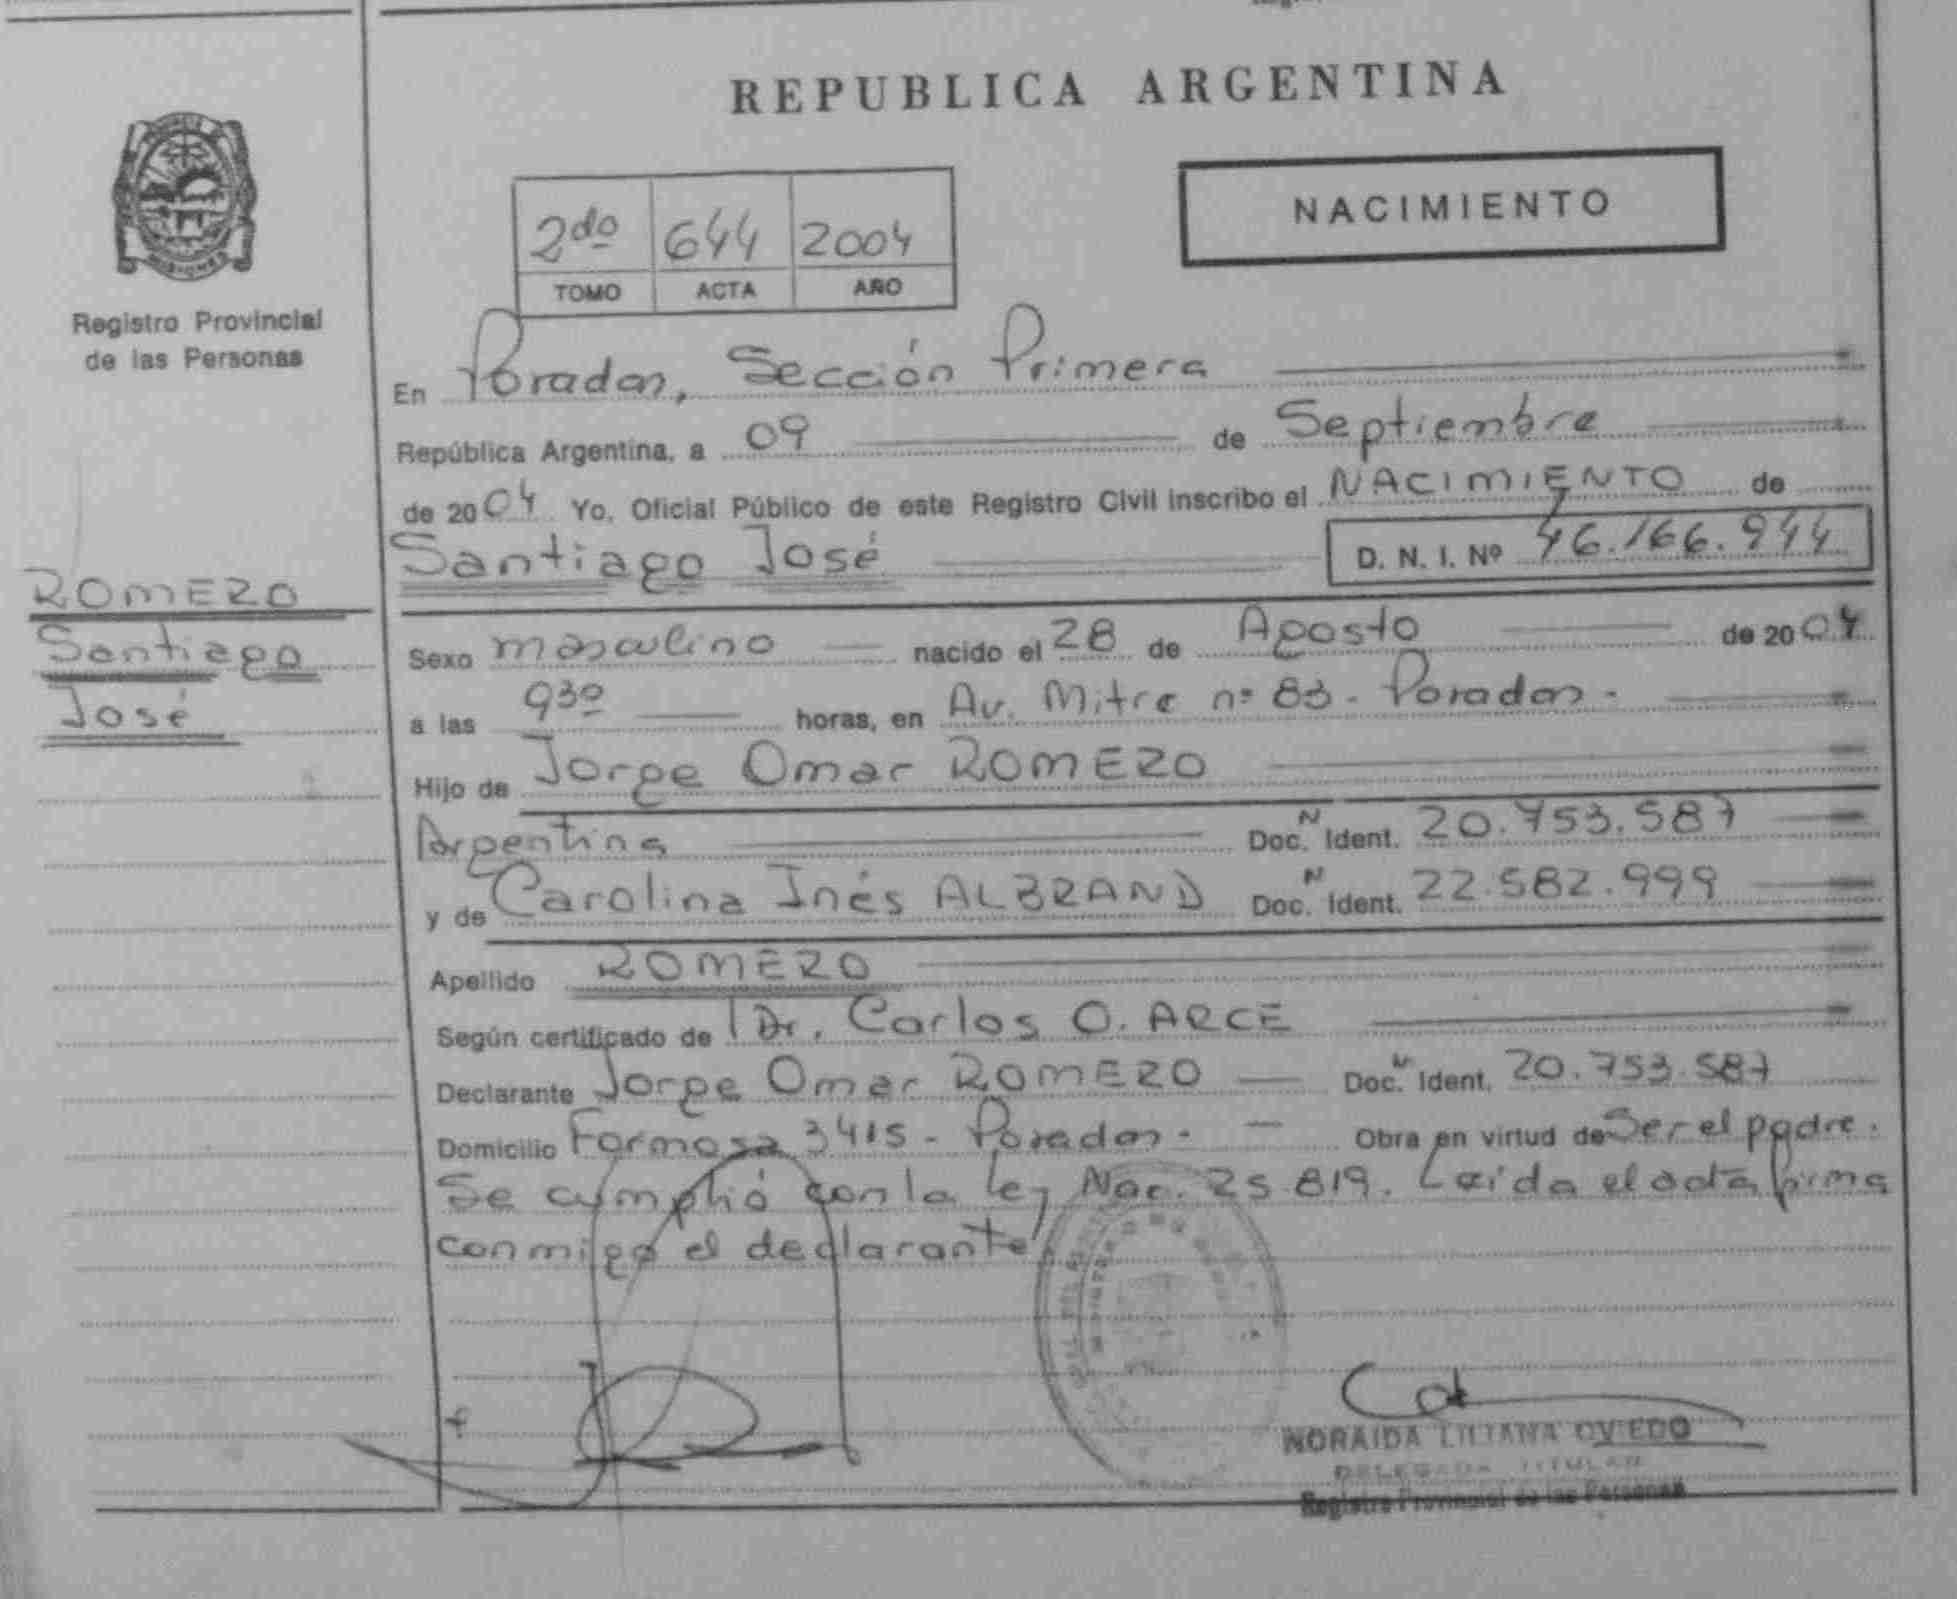 REPUBLICA ARGENTINA
NACIMIENTO
2do 644 2004
TOMO ACTA AÑO
MISIONES
Registro Provincial
de las Personas
ROMERO
Santiago
José
En Posadas, Sección Primera
República Argentina, a 09 de Septiembre
de 2004 Yo, Oficial Público de este Registro Civil inscribo el NACIMIENTO de
Santiago José D. N. I. Nº 46.166.944
Sexo masculino nacido el 28 de Agosto de 2004
a las 930 horas, en Av. Mitre nº 83 - Posadas -
Hijo de Jorge Omar ROMERO
Argentina Doc. N Ident. 20.753.587
y de Carolina Inés ALBRAND Doc. N Ident. 22.582.999
Apellido ROMERO
Según certificado de Dr. Carlos O. ARCE
Declarante Jorge Omar ROMERO Doc. N Ident. 20.753.587
Domicilio Formosa 3415 - Posadas - Obra en virtud de Ser el padre.
Se cumplió con la ley Nac. 25.819. Leída el acta firma
conmigo el declarante
NORAIDA LILIANA OVIEDO
DELEGADA TITULAR
Registro Provincial de las Personas